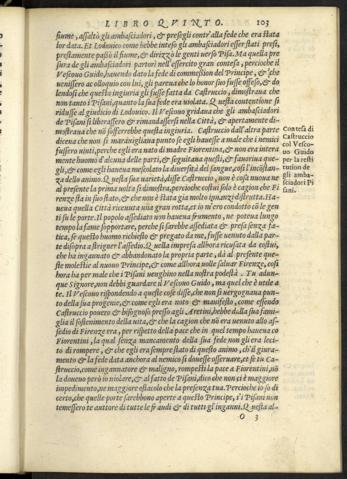 LIBRO QVINTO. 103
fiume, assaltò gli ambasciadori, & presegli contr'alla fede che era stata
lor data. Et Lodouico come hebbe inteso gli ambasciadori esser stati presi,
prestamente passò il fiume, & dirizzò le genti uerso Pisa. Ma quella pre
sura de gli ambasciadori partorì nell'essercito gran contesa, perciò che il
Vescouo Guido, hauendo dato la fede di commession del Principe, & che
uenissero a colloquio con lui, gli pareua che lo honor suo fusse offeso, & do
lendosi che questa ingiuria gli fusse fatta da Castruccio, dimostraua che
non tanto i Pisani, quanto la sua fede era uiolata. Questa contentione si
ridusse al giudicio di Lodouico. Il Vescouo gridaua che gli ambasciadori
de Pisani si liberassero & rimandasseri nella Città, & apertamente di-
mostraua che nõ sofferrebbe questa ingiuria. Castruccio dall'altra parte
diceua che non si marauigliaua punto se egli hauesse a male che i nemici
fussero uinti, perche egli era nato di madre Fiorentina, & non era intera
mente huomo d'alcuna delle parti, & seguitaua questi, & fauoriua que-
gli, & come egli haueua mescolato la diuersità del sangue, così l'incostan-
za dello animo. Questa sua uarietà, disse Castruccio, non è cosa nuoua ne
al presente la prima uolta si dimostra, perciò che costui solo è cagion che Fi
renze stia in suo stato, & che non è stata gia molto ignanzi distrutta. Ha
ueua quella Città riceuuta una gran rotta, et io m'ero condotto cõ le gen
ti su le porte. Il popolo assediato non haueua frumento, ne poteua lungo
tempo la fame sopportare, perche si sarebbe assediata & presa senza fa-
tica, se questo huomo richiesto & pregato da me, fusse uenuto dalla par-
te disopra a strigner l'assedio. Quella impresa allhora ricusata da costui,
che ha ingannato & abbandonato la propria parte, dà al presente que-
ste molestie al nuouo Principe, & come allhora uolle saluar Firenze, così
hora ha per male che i Pisani uenghino nella nostra podestà. Tu adun-
que Signore, non debbi guardare il Vescouo Guido, ma quel che è utile a
te. Il Vescouo rispondendo a queste cose disse, che non si uergognaua pun-
to della sua progenie, & come egli era noto & manifesto, come essendo
Castruccio pouero & bisognoso presso agli Aretini, hebbe dalla sua fami-
glia il sostentamento della uita, & che la cagion che nõ era uenuto allo as-
sedio di Firenze era, per rispetto della pace che in quel tempo haueua co
Fiorentini, la qual senza mancamento della sua fede non gli era leci-
to di rompere, & che egli era sempre stato di questo animo, ch'il giura-
mento & la fede data anchora al nemico si douesse osseruare, et se tu Ca-
struccio, come ingannatore & maligno, rompesti la pace a Fiorentini, nõ
la doueuo però io uiolare, & al fatto de Pisani, dico che non ti è maggiore
impedimento, ne maggiore ostacolo che la presenza tua. Perciò che io so di
certo, che quelle porte sarebbono aperte a questo Principe, s'i Pisani non
temessero te auttore di tutte le fraudi & di tutti gl'inganni. Questa al-
O 3
Contesa di
Castruccio
col Vesco-
uo Guido
per la resti
tution de
gli amba-
sciadori Pi
sani.